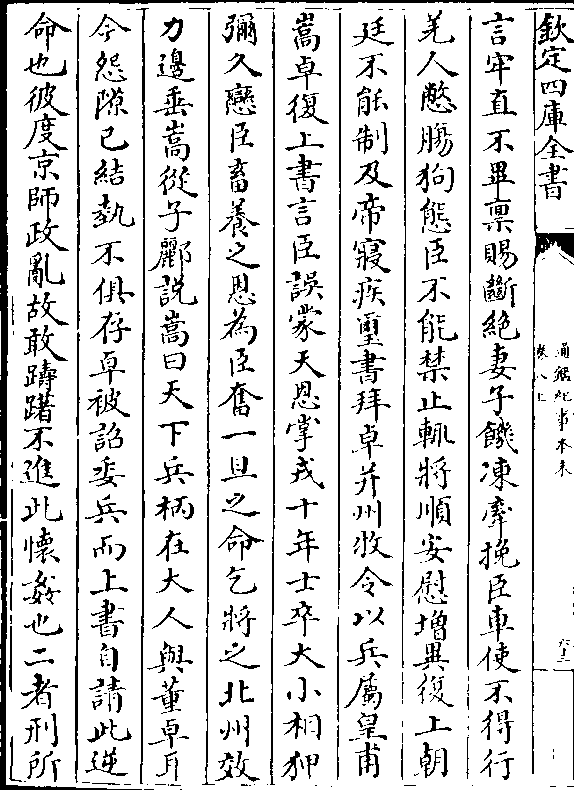 欽定四庫全書
通鑑紀事本末
卷八上
言牢直不畢禀賜斷絶妻子饑凍牽挽臣車使不得行
羌人憋腸狗態臣不能禁止輒將順安慰增異復上朝
廷不能制及帝寢疾璽書拜卓并州牧令以兵屬皇甫
嵩卓復上書言臣誤蒙天恩掌戎十年士卒大小相狎
彌久戀臣畜養之恩為臣奮一旦之命乞將之北州效
力邊垂嵩從子酈說嵩曰天下兵柄在大人與董卓耳
今怨隙已結埶不俱存卓被詔委兵而上書自請此逆
命也彼度京師政亂故敢躊躇不進此懷姦也二者刑所